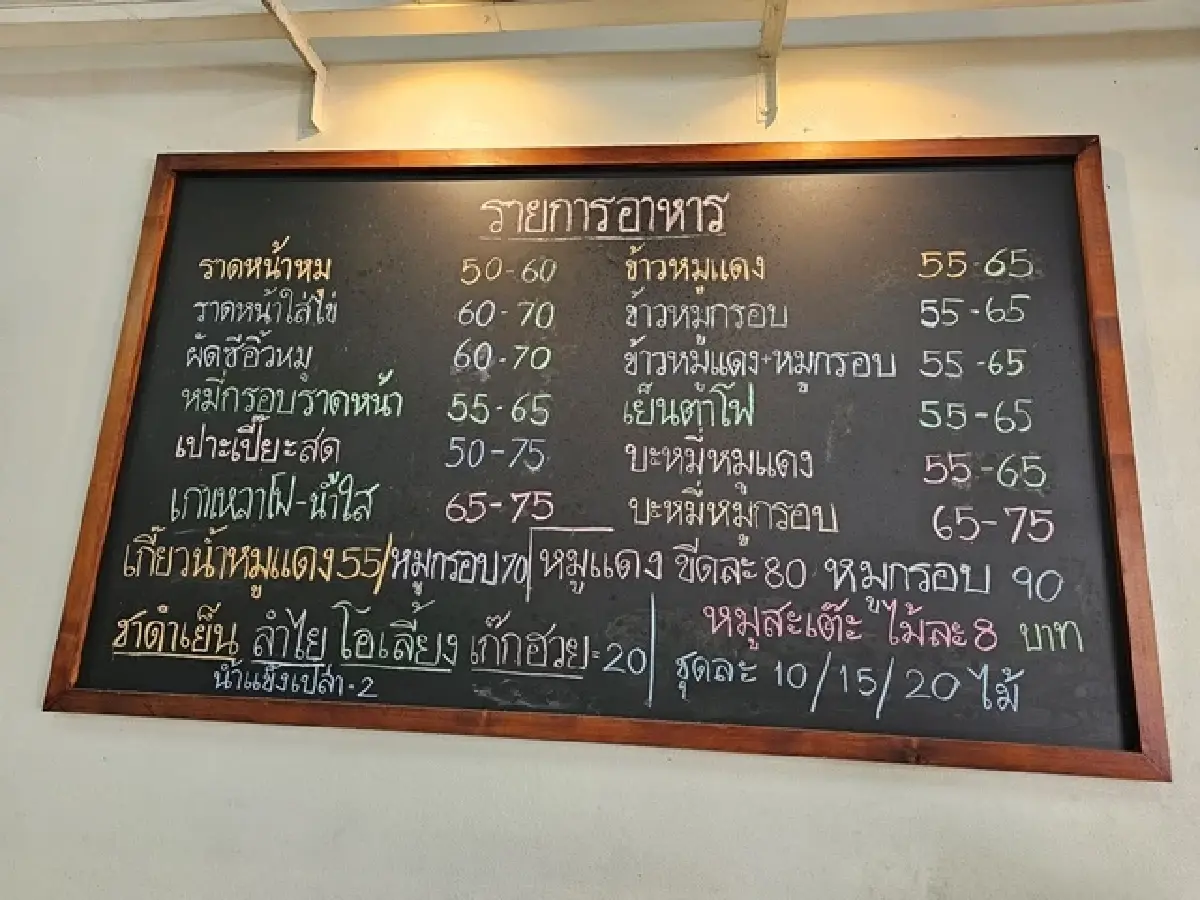 รายการอาหาร
ราดหน้าหมู 50-60 ข้าวหมูแดง 55-65
ราดหน้าใส่ไข่ 60-70 ข้าวหมูกรอบ 55-65
ผัดซีอิ้วหมู 60-70 ข้าวหมูแดง+หมูกรอบ 55-65
หมี่กรอบราดหน้า 55-65 เย็นตาโฟ 55-65
เปาะเปี๊ยะสด 50-75 บะหมี่หมูแดง 55-65
เกาเหลาโฟ-น้ำใส 65-75 บะหมี่หมูกรอบ 65-75
เกี๊ยวน้ำหมูแดง 55/หมูกรอบ 70 หมูแดง ขีดละ 80 หมูกรอบ 90
ชาดำเย็น ลำไย โอเลี้ยง เก๊กฮวย = 20 หมูสะเต๊ะ ไม้ละ 8 บาท
น้ำแข็งเปล่า - 2 ชุดละ 10/15/20 ไม้